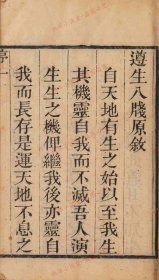 遵生八牋原敘
自天地有生之始以至我生
其機靈自我而不滅吾人演
生生之機俾繼我後亦靈自
我而長存是運天地不息之
亭一